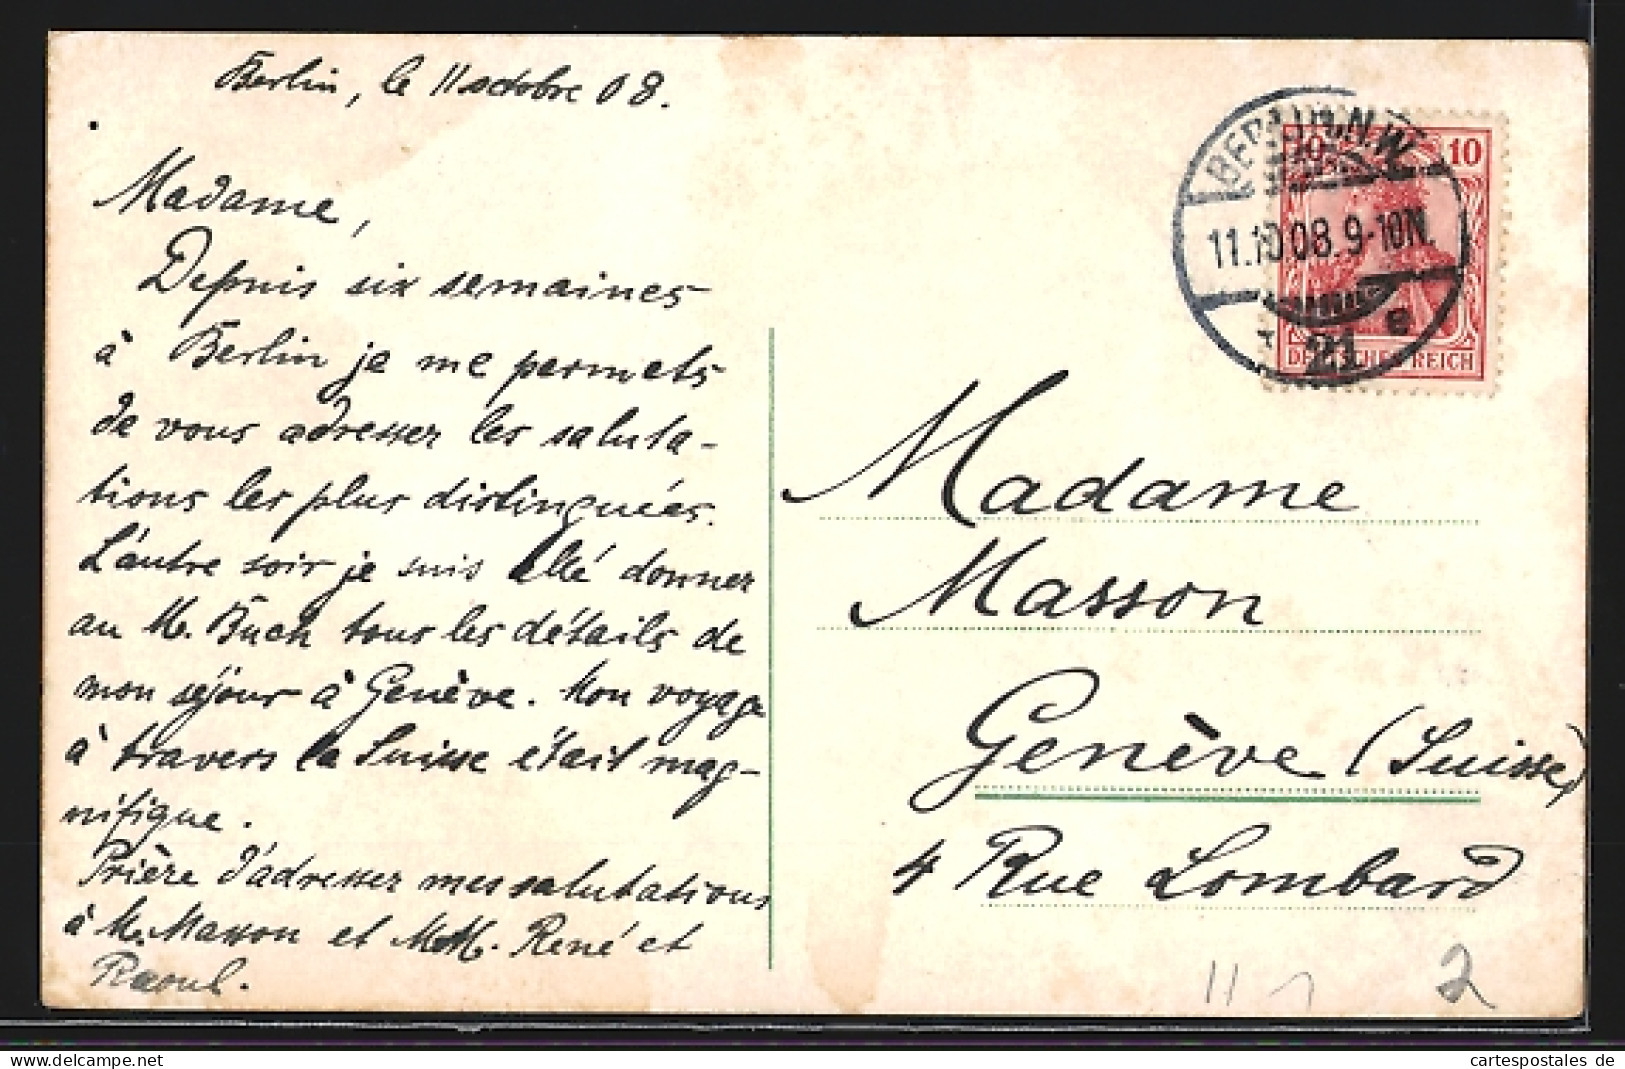 Berlin, le 11 octobre 08.
Madame,
Depuis six semaines
à Berlin je me permets
de vous adresser les saluta-
tions les plus distinguées.
L'autre soir je suis allé donner
au M. Buch tous les détails de
mon séjour à Genève. Mon voyage
à travers la Suisse était mag-
nifique.
Prière d'adresser mes salutations
à M. Masson et MM. René et
Raoul.
BERLIN N.W.
11.10.08.9-10N.
* 21 e
10 10
DEUTSCHES REICH
Madame
Masson
Genève (Suisse)
4 Rue Lombard
2
cartespostales de